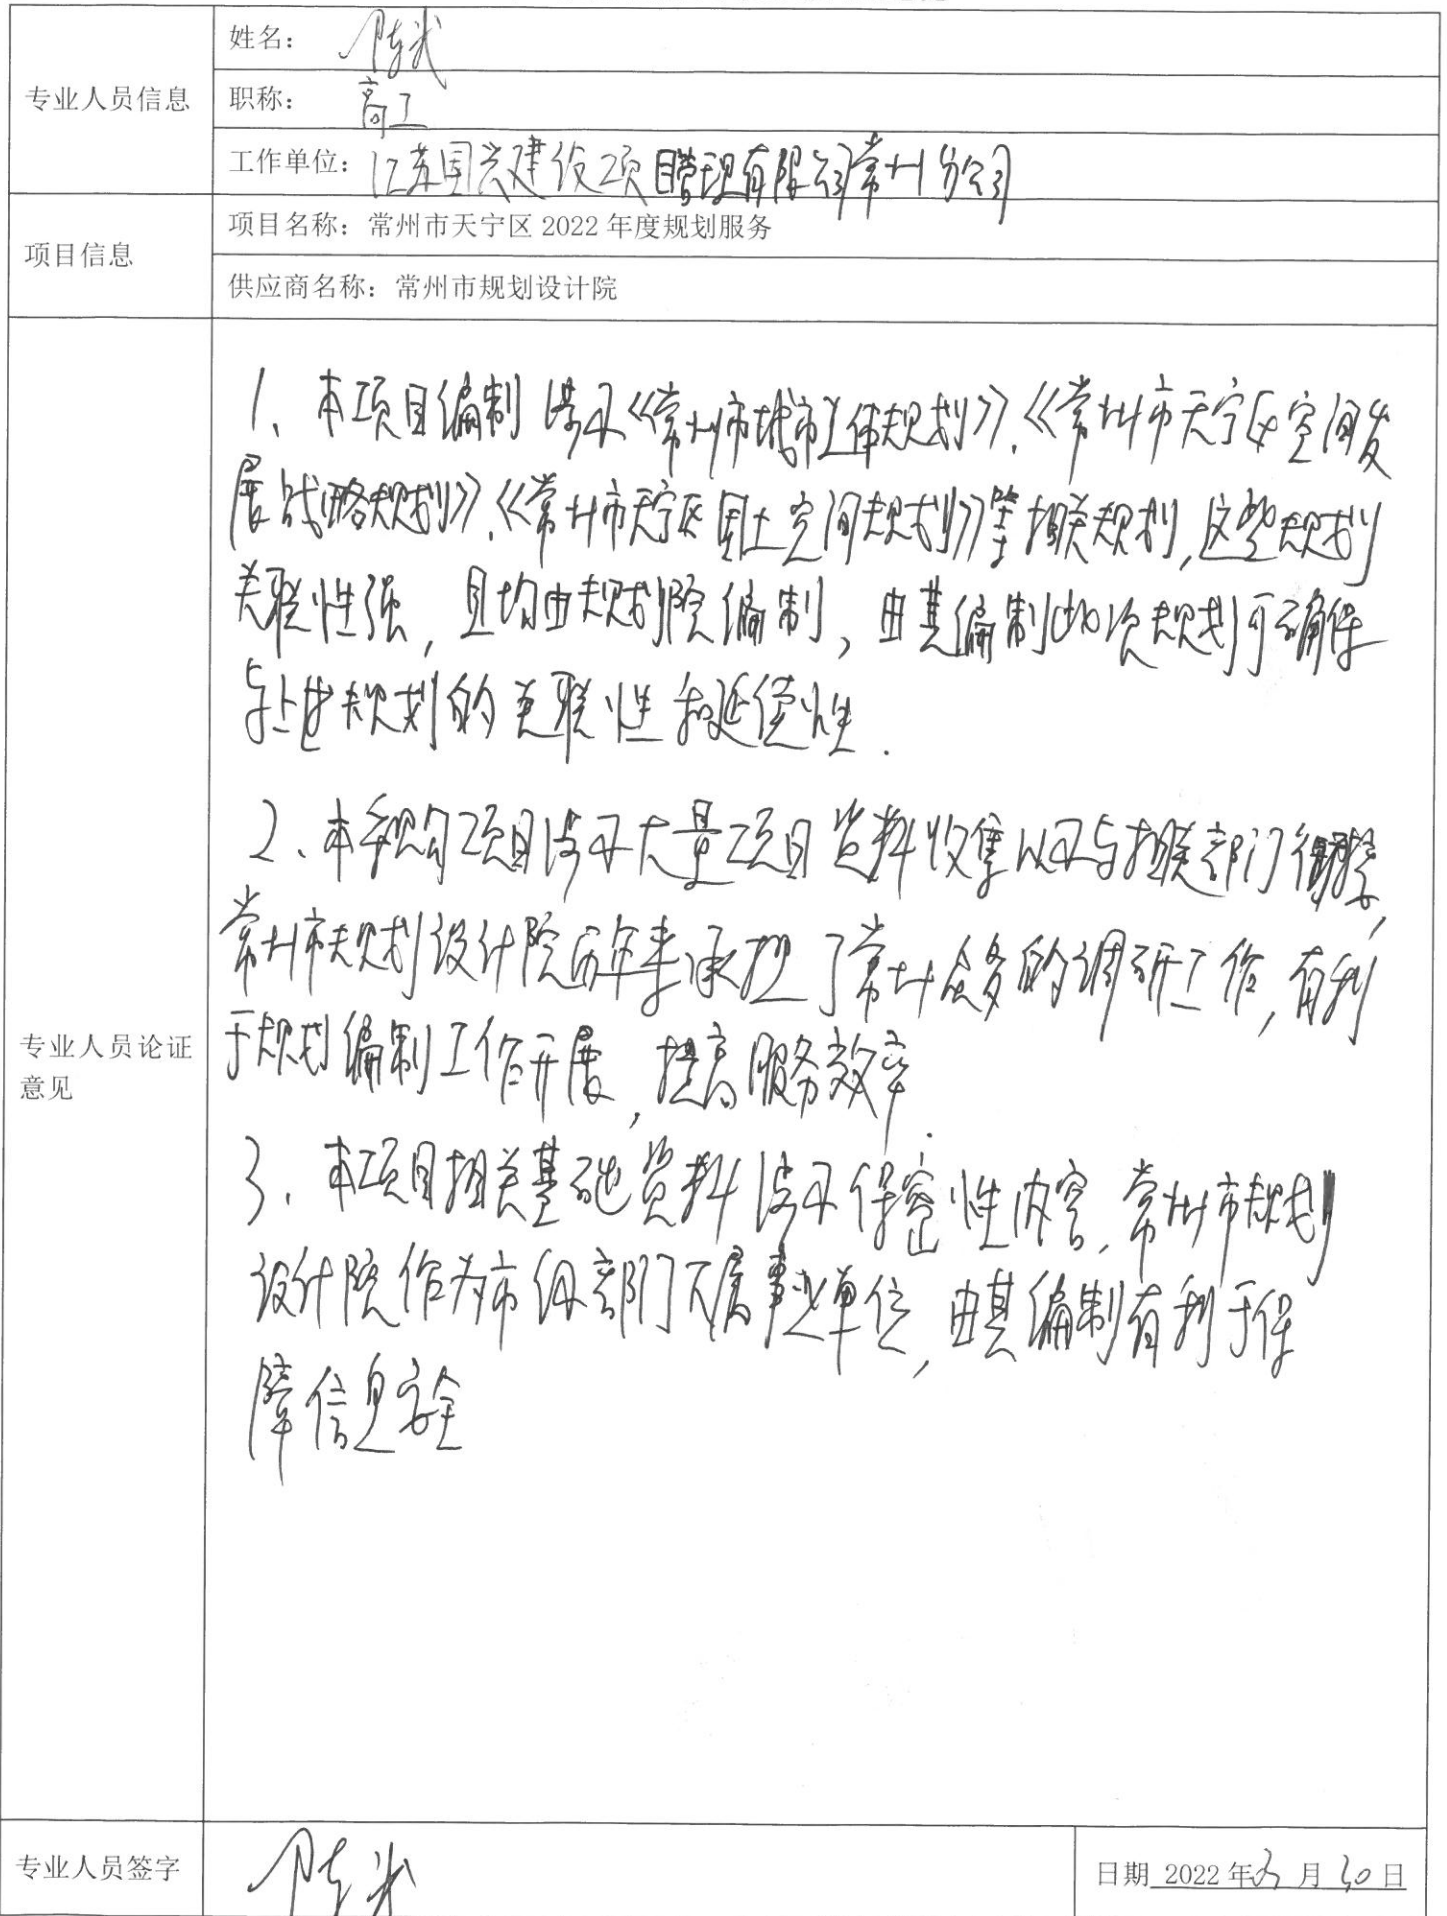 专业人员信息
姓名：陈
职称：高工
工作单位：江苏国兴建设项目管理有限公司常州分公司
项目信息
项目名称：常州市天宁区 2022 年度规划服务
供应商名称：常州市规划设计院
专业人员论证
意见
1、本项目编制涉及《常州市城市总体规划》、《常州市天宁区空间发
展战略规划》、《常州市天宁区国土空间规划》等相关规划，这些规划
关联性强，且均由规划院编制，由其编制此次规划可确保
与上述规划的关联性和延续性.
2、本采购项目涉及大量项目资料收集以及与相关部门衔接，
常州市规划设计院历年来承担了常州众多的调研工作，有利
于规划编制工作开展，提高服务效率.
3、本项目相关基础资料涉及保密性内容，常州市规划
设计院作为市级部门下属事业单位，由其编制有利于保
障信息安全
专业人员签字
陈
日期 2022 年 月 30 日